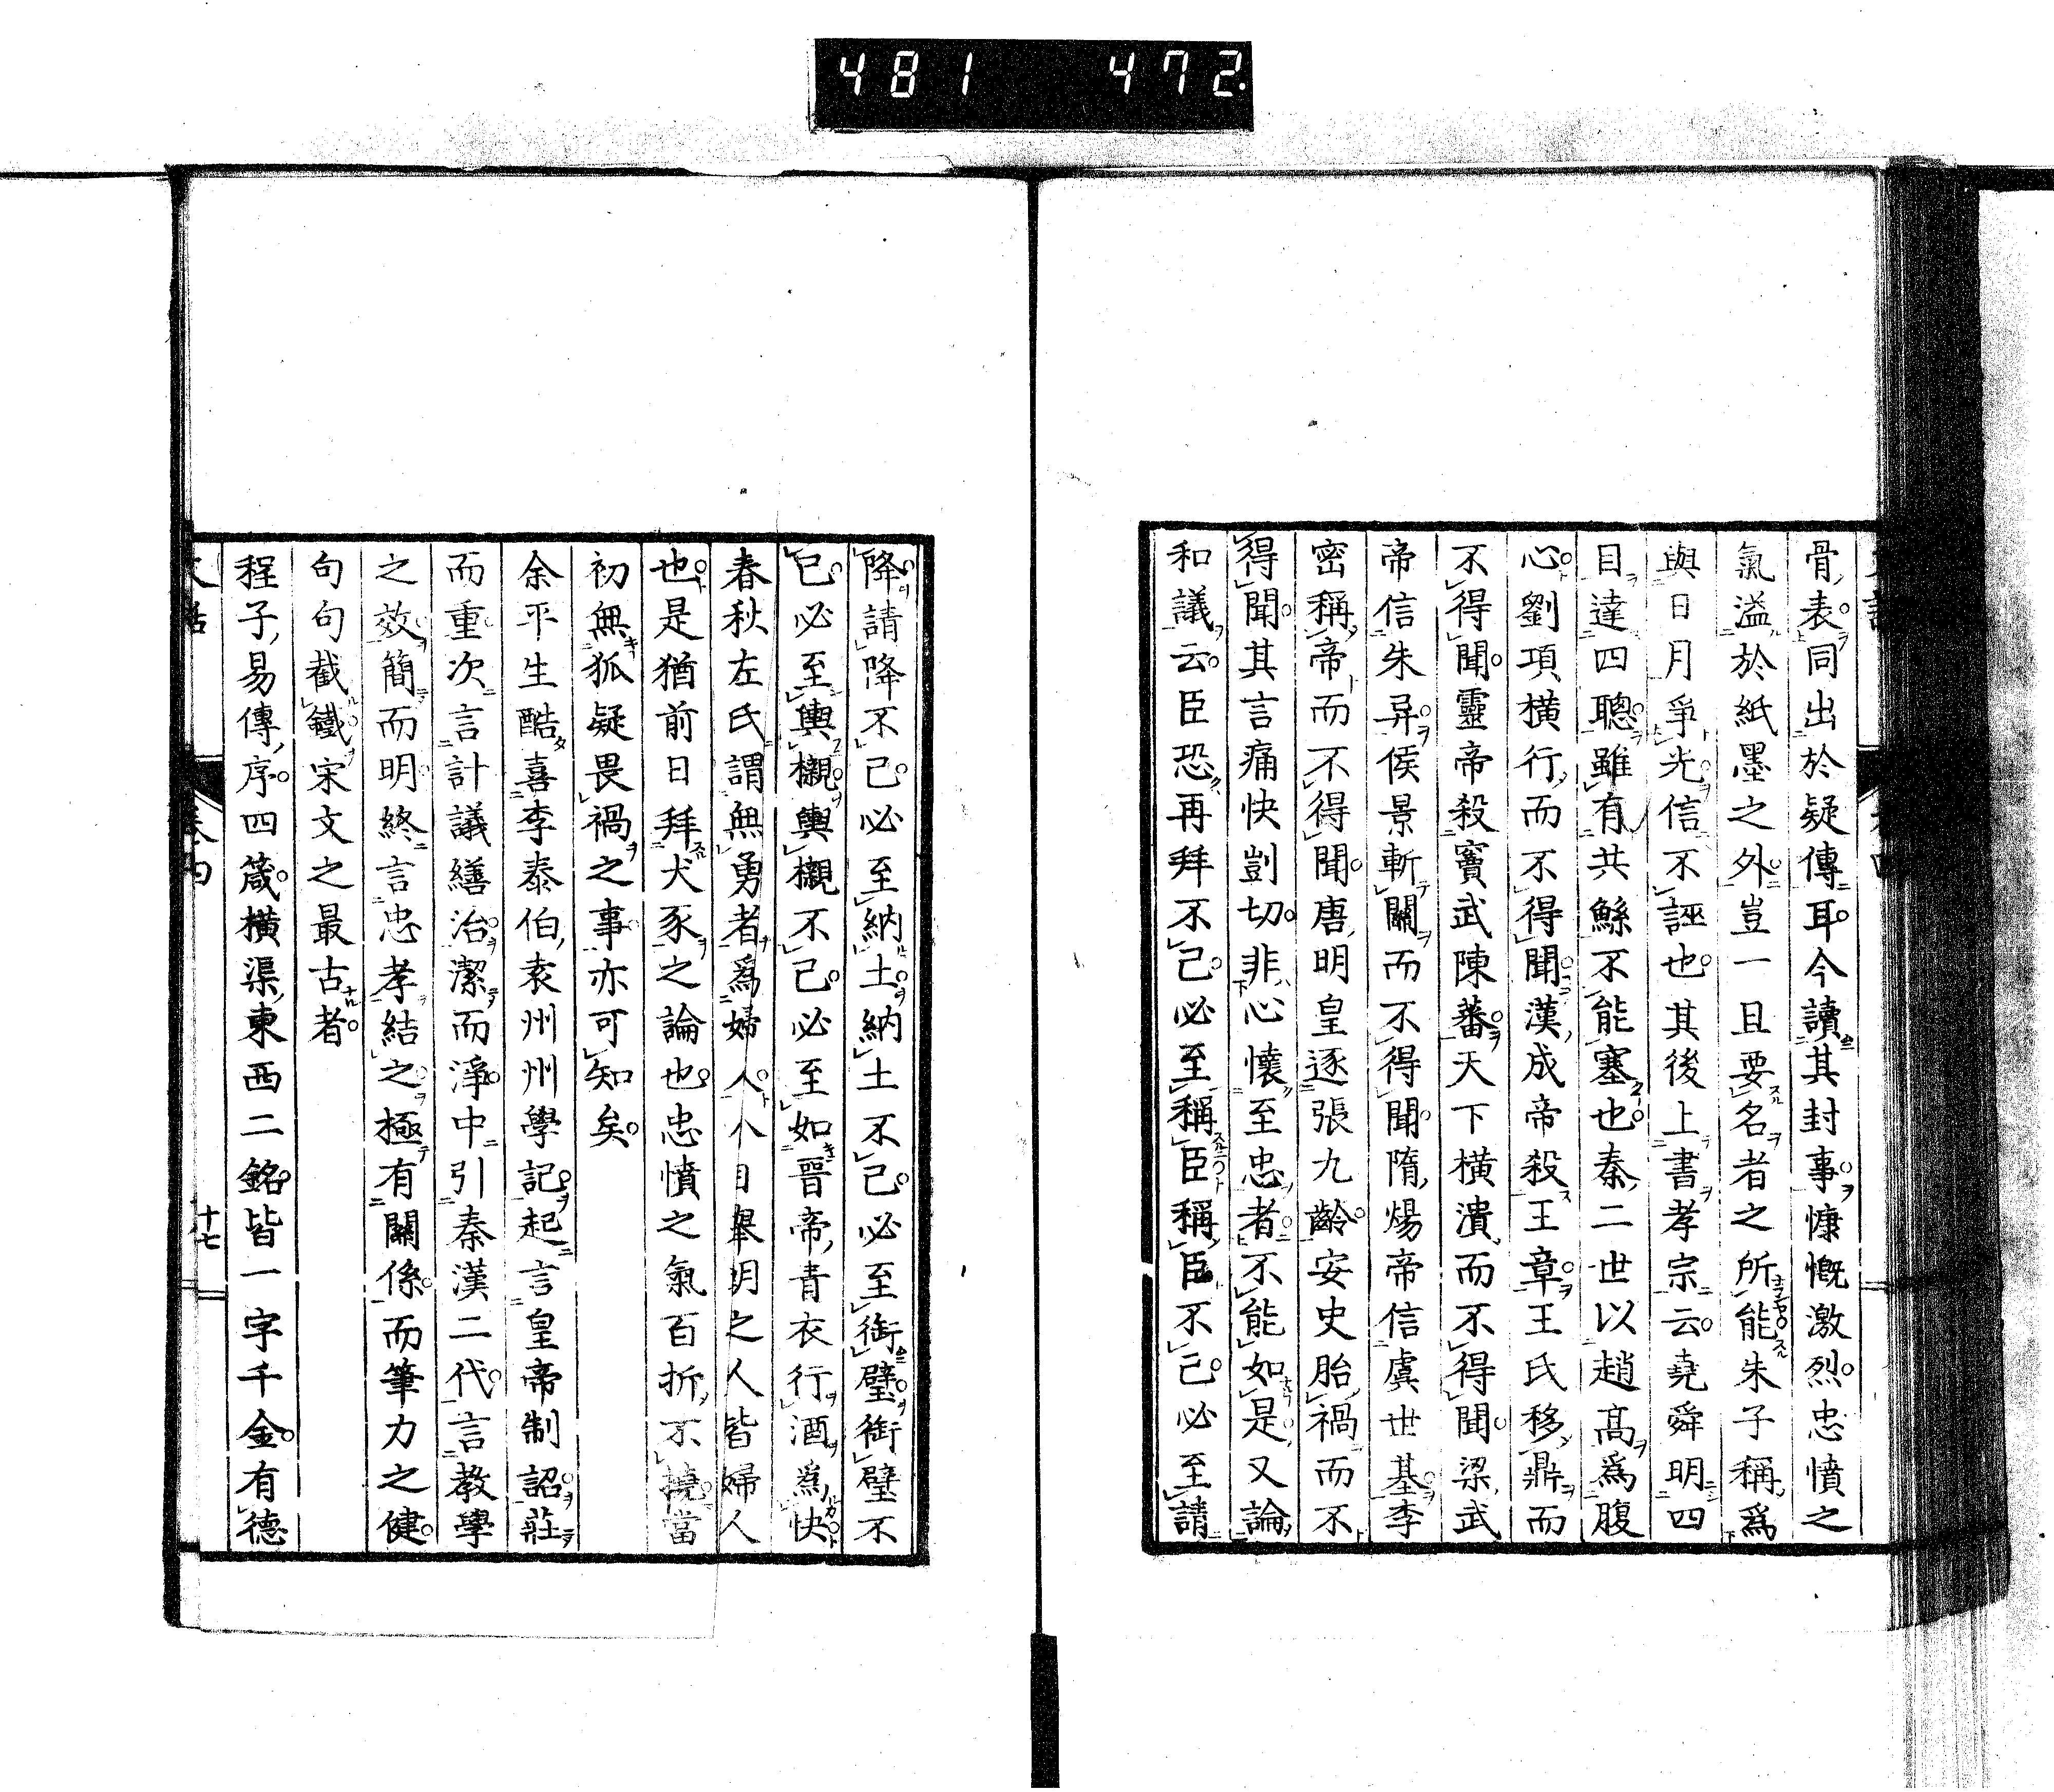 481 472
骨表同出於疑傳耳今讀其封事慷慨激烈忠憤之
氣溢於紙墨之外豈一旦要名者之所能朱子稱爲
與日月爭光信不誣也其後上書孝宗云堯舜明四
目達四聰雖有共鯀不能塞也秦二世以趙高爲腹
心劉項横行而不得聞漢成帝殺王章王氏移鼎而
不得聞靈帝殺竇武陳蕃天下横潰而不得聞梁武
帝信朱异侯景斬關而不得聞隋煬帝信虞世基李
密稱帝而不得聞唐明皇逐張九齡安史胎禍而不
得聞其言痛快剴切非心懷至忠者不能如是又論
和議云臣恐再拜不已必至稱臣稱臣不已必至請
降請降不已必至納土納土不已必至銜璧銜璧不
已必至輿櫬輿櫬不已必至如晉帝青衣行酒爲快
春秋左氏謂無勇者爲婦人今日舉朝之人皆婦人
也是猶前日拜犬豕之論也忠憤之氣百折不撓當
初無狐疑畏禍之事亦可知矣
余平生酷喜李泰伯袁州州學記起言皇帝制詔莊
而重次言計議繕治潔而淨中引秦漢二代言教學
之效簡而明終言忠孝結之極有關係而筆力之健
句句截鐵宋文之最古者
程子易傳序四箴横渠東西二銘皆一字千金有德
文話 卷四 十七